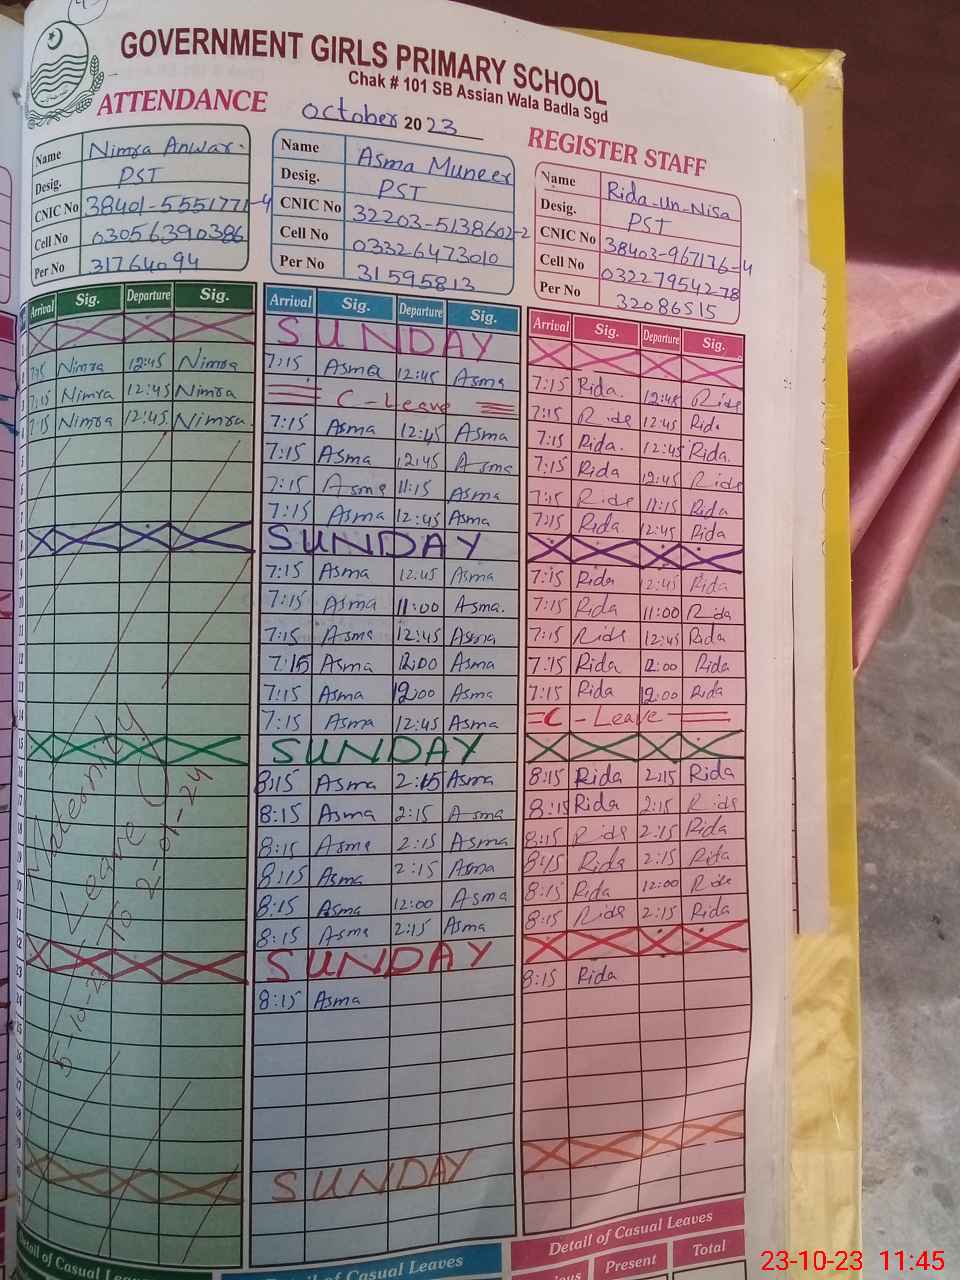 GOVERNMENT GIRLS PRIMARY SCHOOL
Chak # 101 SB Assian Wala Badla Sgd
ATTENDANCE October 2023 REGISTER STAFF
Name Nimra Anwar.
Desig. PST
CNIC No 38401-5551771-4
Cell No 03056390386
Per No 31764094
Name Asma Muneer
Desig. PST
CNIC No 32203-5138602-2
Cell No 03326473010
Per No 31595813
Name Rida-Un-Nisa
Desig. PST
CNIC No 38403-967176-4
Cell No 032279542-78
Per No 32086515
Arrival Sig. Departure Sig.
7:15 Nimra 12:45 Nimra
7:15 Nimra 12:45 Nimra
7:15 Nimra 12:45 Nimra
Maternity
Leave
5-10-23 To 2-01-24
Arrival Sig. Departure Sig.
SUNDAY
7:15 Asma 12:45 Asma
C-Leave
7:15 Asma 12:45 Asma
7:15 Asma 12:45 Asma
7:15 Asma 11:15 Asma
7:15 Asma 12:45 Asma
SUNDAY
7:15 Asma 12:45 Asma
7:15 Asma 11:00 Asma.
7:15 Asma 12:45 Asma
7:15 Asma 12:00 Asma
7:15 Asma 12:00 Asma
7:15 Asma 12:45 Asma
SUNDAY
8:15 Asma 2:15 Asma
8:15 Asma 2:15 Asma
8:15 Asma 2:15 Asma
8:15 Asma 2:15 Asma
8:15 Asma 12:00 Asma
8:15 Asma 2:15 Asma
SUNDAY
8:15 Asma
SUNDAY
Arrival Sig. Departure Sig.
7:15 Rida. 12:45 Rida
7:15 Rida 12:45 Rida
7:15 Rida. 12:45 Rida.
7:15 Rida 12:45 Rida
7:15 Rida 11:15 Rida
7:15 Rida 12:45 Rida
7:15 Rida 12:45 Rida
7:15 Rida 11:00 Rida
7:15 Rida 12:45 Rida
7:15 Rida 12:00 Rida
7:15 Rida 12:00 Rida
C-Leave
8:15 Rida 2:15 Rida
8:15 Rida 2:15 Rida
8:15 Rida 2:15 Rida
8:15 Rida 2:15 Rida
8:15 Rida 12:00 Rida
8:15 Rida 2:15 Rida
8:15 Rida
Detail of Casual Leaves
Detail of Casual Leaves
Detail of Casual Leaves
Present Total
23-10-23 11:45